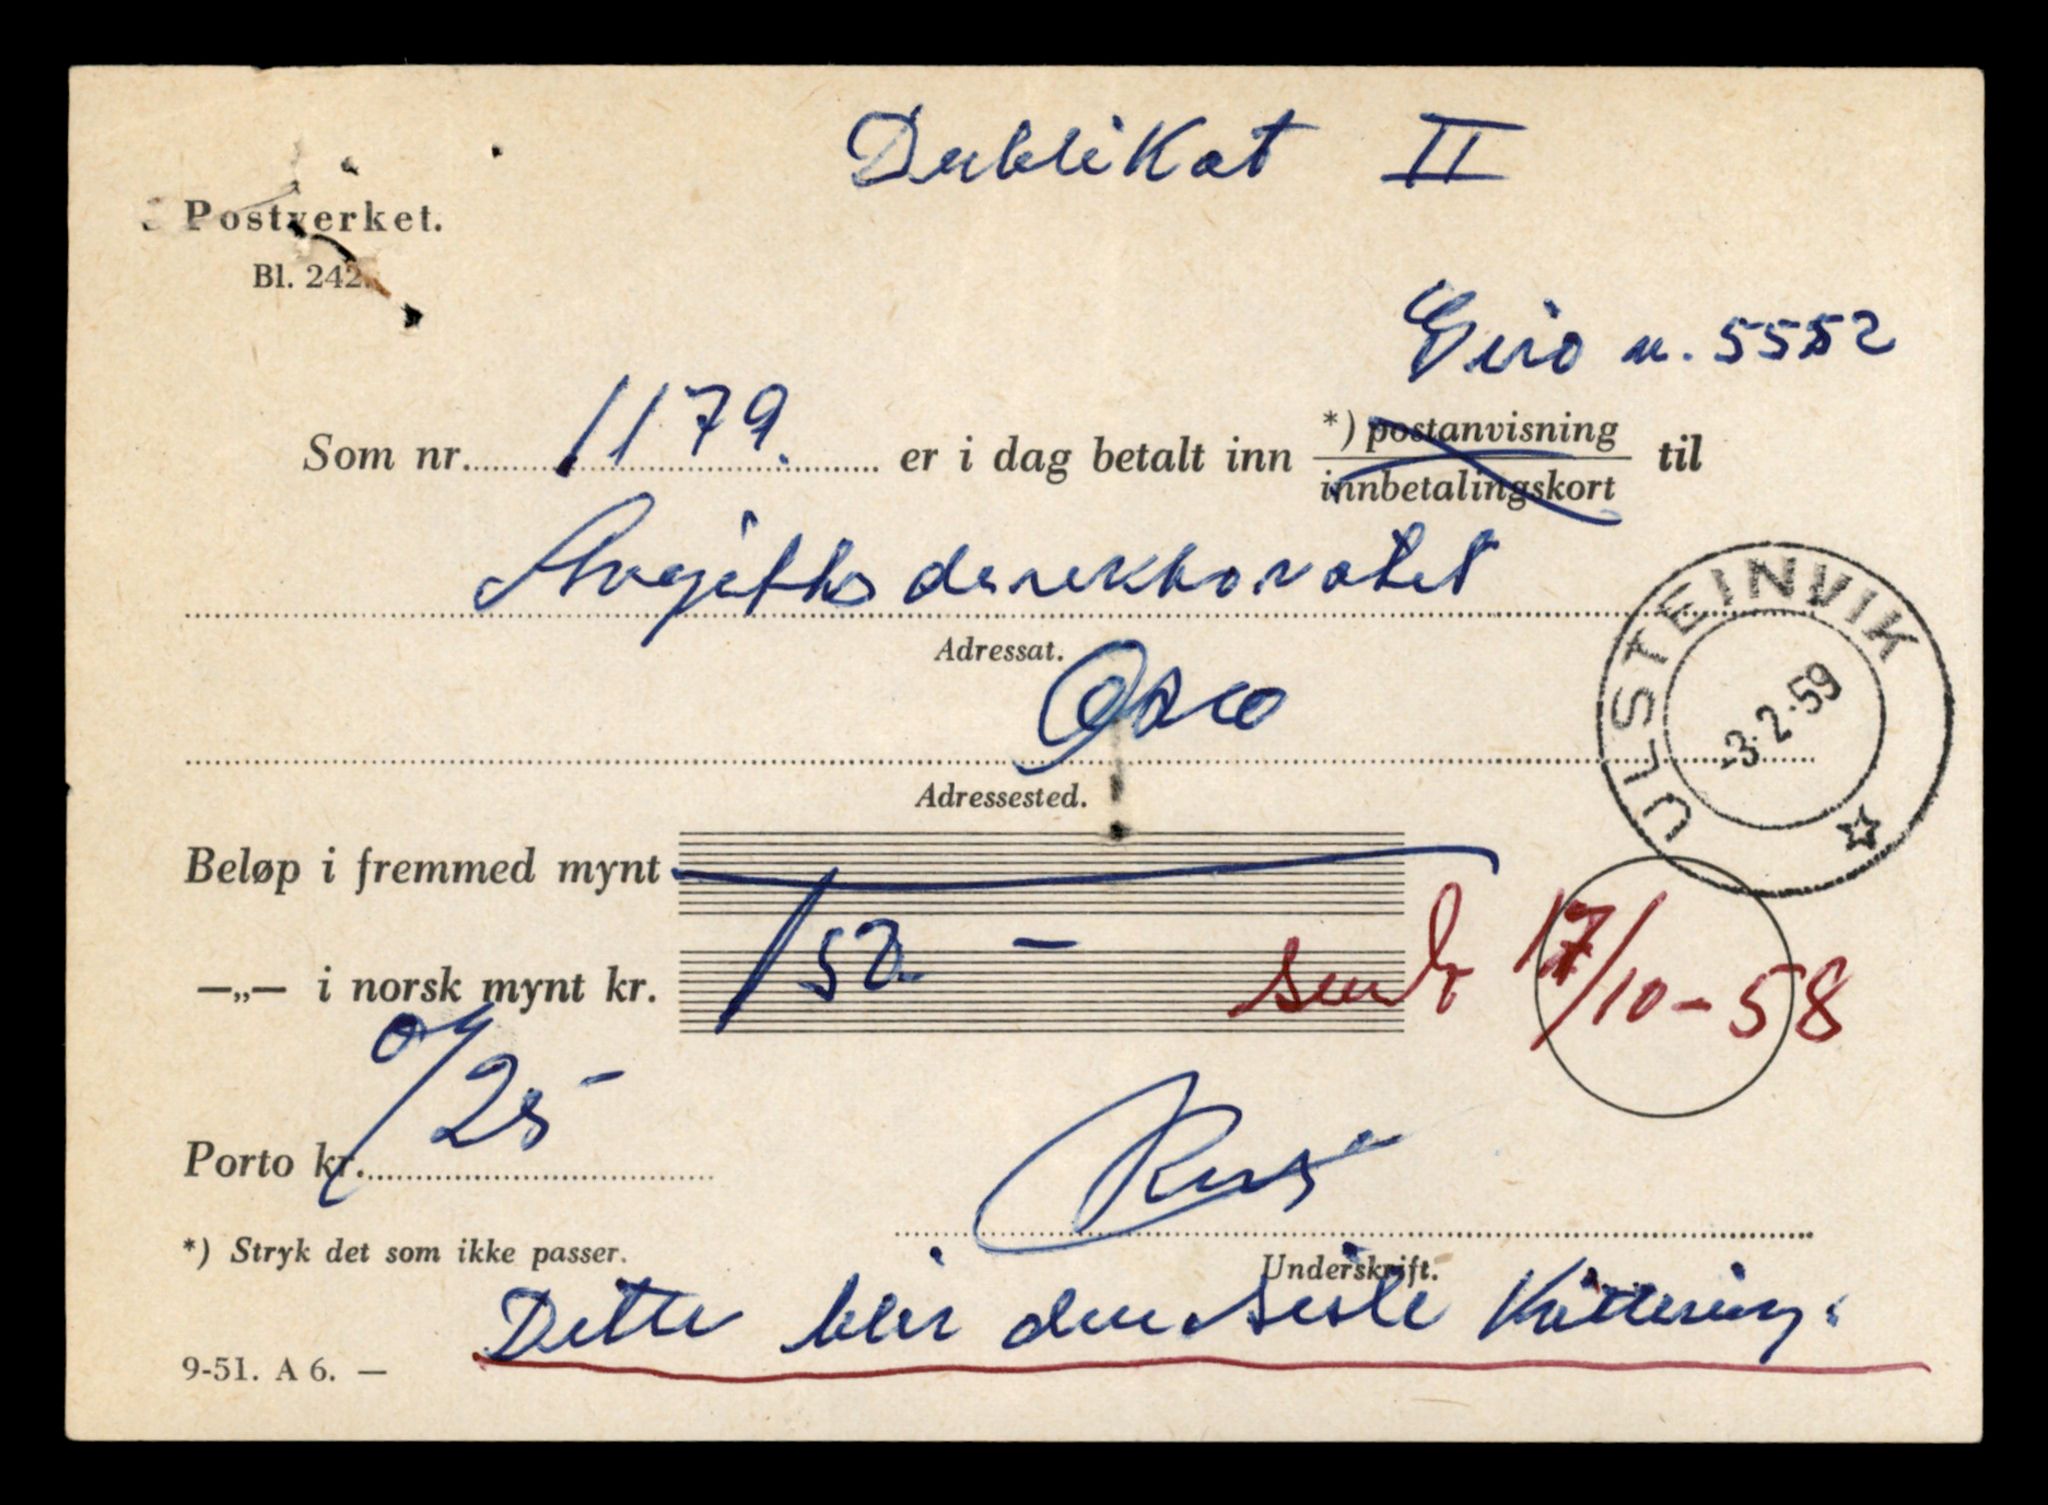 Dublikat II
Postverket.
Bl. 242.
Giro n. 5552
Som nr. 1179. er i dag betalt inn *) postanvisning til
innbetalingskort
Avgiftsdirektoratet
Adressat.
Oslo
Adressested.
ULSTEINVIK
-3.2.59
Beløp i fremmed mynt
—„— i norsk mynt kr. 150.-
sendt 17/10-58
Porto kr. 0/25
*) Stryk det som ikke passer.
Underskrift.
Dette blir den siste Kvittering.
9-51. A 6. —